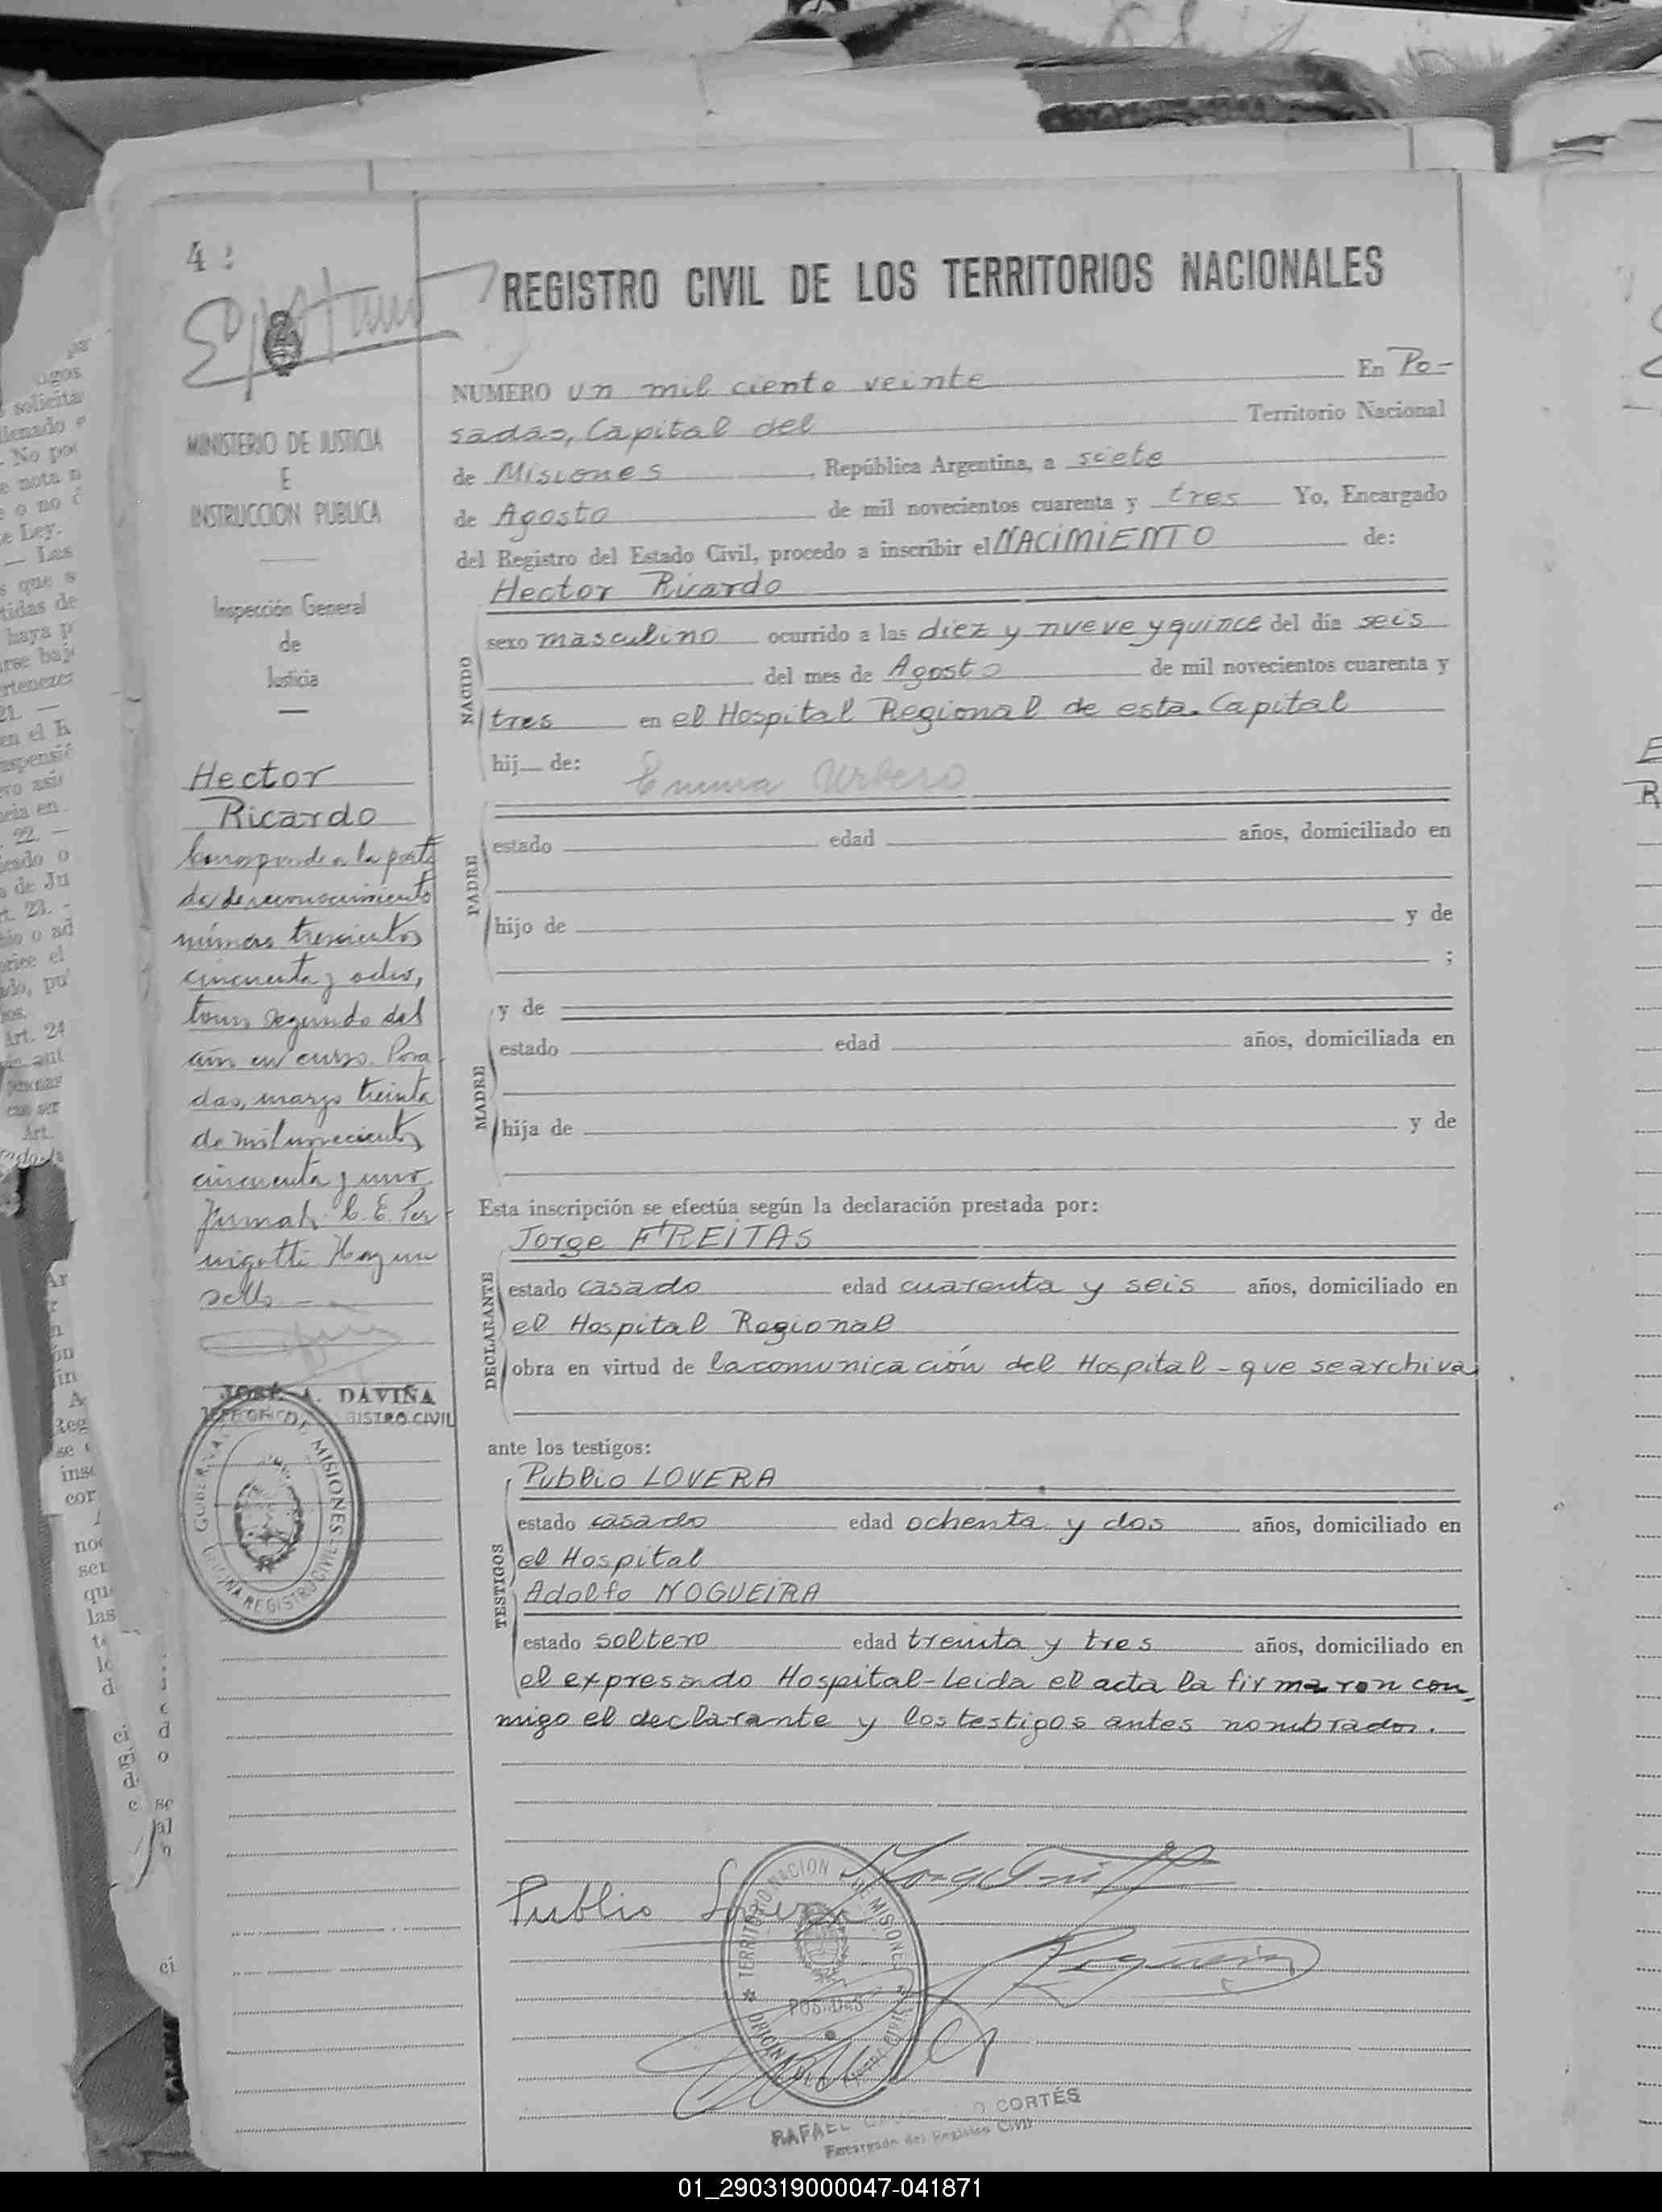 4
REGISTRO CIVIL DE LOS TERRITORIOS NACIONALES
NUMERO un mil ciento veinte En Po-
sadas, Capital del Territorio Nacional
de Misiones, República Argentina, a siete
de Agosto de mil novecientos cuarenta y tres Yo, Encargado
del Registro del Estado Civil, procedo a inscribir el NACIMIENTO de:
NACIDO
Hector Ricardo
sexo masculino ocurrido a las diez y nueve y quince del día seis
del mes de Agosto de mil novecientos cuarenta y
tres en el Hospital Regional de esta Capital
hij de: Emma
PADRE
estado edad años, domiciliado en
hijo de y de
;
y de
MADRE
estado edad años, domiciliada en
hija de y de
Esta inscripción se efectúa según la declaración prestada por:
DECLARANTE
Jorge FREITAS
estado casado edad cuarenta y seis años, domiciliado en
el Hospital Regional
obra en virtud de la comunicación del Hospital - que se archiva
ante los testigos:
TESTIGOS
Publio LOVERA
estado casado edad ochenta y dos años, domiciliado en
el Hospital
Adolfo NOGUEIRA
estado soltero edad treinta y tres años, domiciliado en
el expresado Hospital - Leida el acta la firmaron con-
migo el declarante y los testigos antes nombrados.
Publio Lovera
TERRITORIO NACIONAL DE MISIONES
POSADAS
RAFAEL CORTÉS
Encargado del Registro Civil
MINISTERIO DE JUSTICIA
E
INSTRUCCION PUBLICA
Inspección General
de
Justicia
Hector
Ricardo
Corresponde a la parti
da de reconocimiento
número trescientos
cincuenta y ocho,
tomo segundo del
año en curso. Posa-
das, marzo treinta
de mil novecientos
cincuenta y uno
Firmado: C. E. Per-
nigotti Hay un
sello
JOSE A. DAVIÑA
JEFE OFIC. REGISTRO CIVIL
MISIONES
REGISTRO CIVIL
01_290319000047-041871